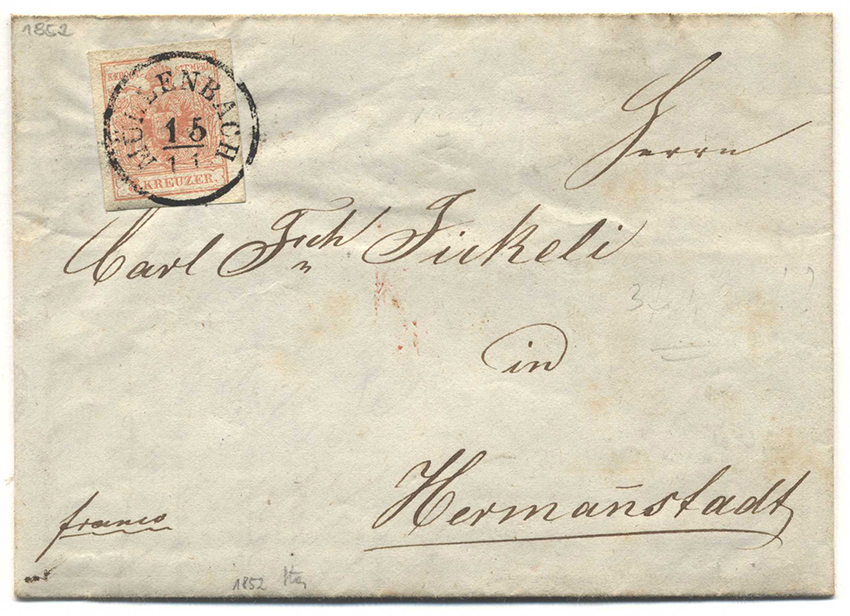 1852
MÜHLENBACH
15
11
KREUZER.
Herrn
Carl Frdh Jickeli
in
Hermañstadt
franco
1852